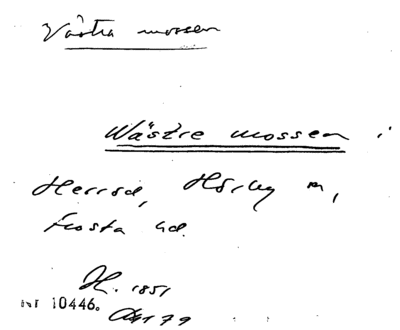 Västra mossen
Wästre mossen i
Herrod, Hörby sn,
Frosta hd.
H. 1851
10446.
Akt 79